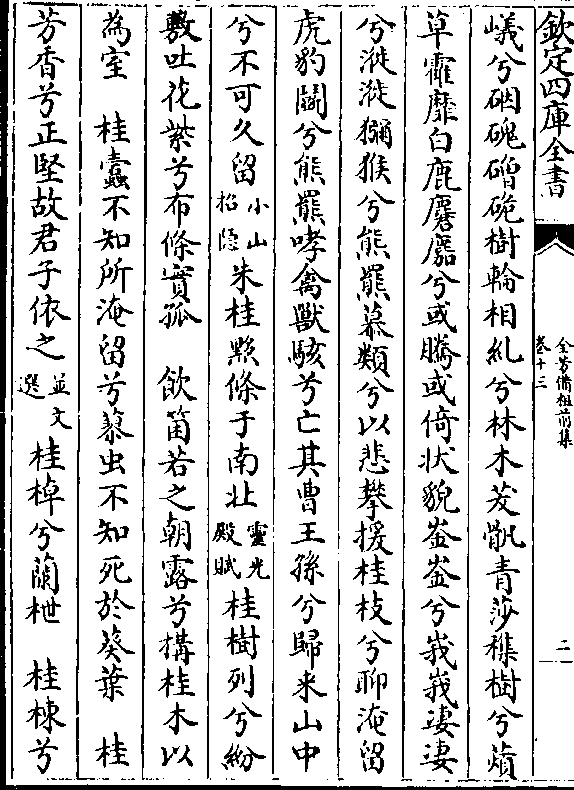 欽定四庫全書
全芳備祖前集
卷十三
二
嶬兮硱磈磳硊樹輪相糺兮林木茇骫青莎雜樹兮薠
草靃靡白鹿麏麚兮或騰或倚狀貌崟崟兮峩峩凄凄
兮漇漇獼猴兮熊羆慕類兮以悲攀援桂枝兮聊淹留
虎豹鬭兮熊羆咆禽獸駭兮亡其曹王孫兮歸來山中
兮不可久留 小山招隱 朱桂黝條于南北 靈光殿賦 桂樹列兮紛
敷吐花紫兮布條實孤 飲菌若之朝露兮構桂木以
為室 桂蠧不知所淹留兮蓼虫不知死於葵葉 桂
芳香兮正堅故君子依之 並文選 桂棹兮蘭枻 桂棟兮